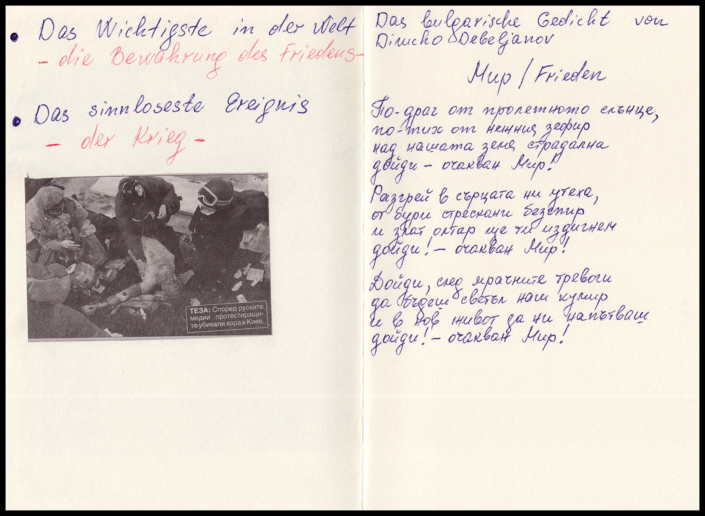 • Das Wichtigste in der Welt
– die Bewahrung des Friedens –
• Das sinnloseste Ereignis
– der Krieg –
ТЕЗА: Според руските
медии протестиращи-
те убивали хора в Киев.
Das bulgarische Gedicht von
Dimcho Debeljanov
Мир / Frieden
По-драг от пролетното слънце,
по-тих от нежния зефир
над нашата земя страдална
дойди – очакван Мир!
Разгрей в сърцата ни утеха,
от бури стреснани безспир
и злат олтар ще ти издигнем
дойди! – очакван Мир!
Дойди, след мрачните тревоги
да бъдеш светъл наш кумир
и в нов живот да ни напътваш
дойди! – очакван Мир!